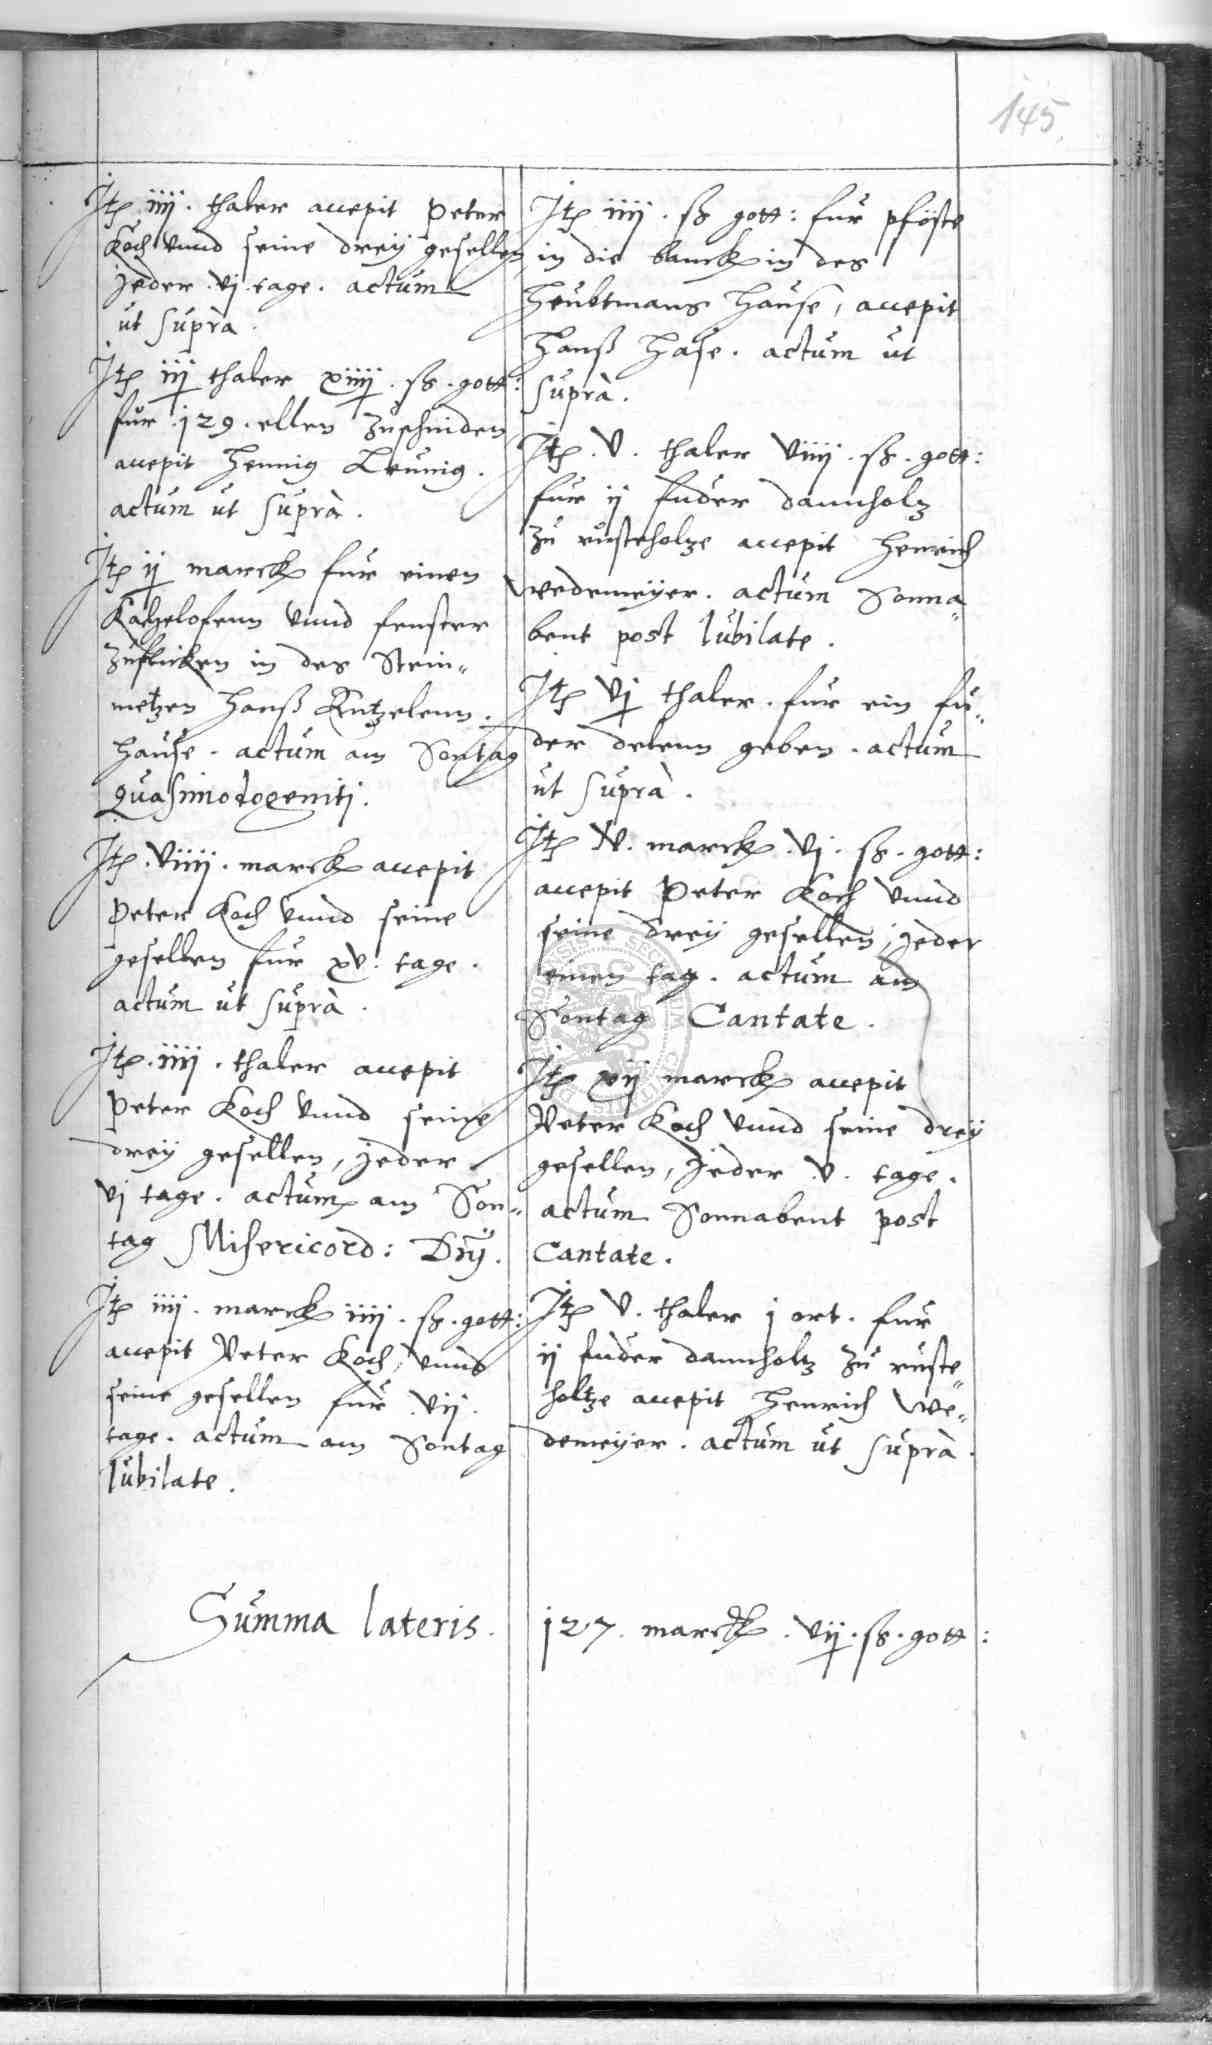 145
Jtꝫ iiij. thaler accepit Peter
Koch vnnd seine dreÿ gesellen
jeder .vj. tage. actum
ut suprà.
Jtꝫ iij thaler xiiij. ß. gott:
fur .129. ellen zuschniden
accepit Hennig Leunig.
actum ut suprà.
Jtꝫ ij marck fur einen
Kachelofenn vnnd fenster
zuflicken in des Stein„
metzen Hanß Kutzelenn
hause. actum am Sontag
quasimodogenitj.
Jtꝫ. viiij. marck accepit
Peter Koch vnnd seine
gesellen fur xv. tage.
actum ut suprà.
Jtꝫ. iiij. thaler accepit
Peter Koch vnnd seine
dreÿ gesellen, jeder
vj tage. actum am Son„
tag Misericord: Dnj.
Jtꝫ iiij. marck iiij. ß. gott:
accepit Peter Koch, vnnd
seine gesellen fur .vij.
tage. actum am Sontag
Iubilate.
Jtꝫ iiij. ß gott: fur pföste
in die banck in des
Heubtmans Hause, accepit
Hanß Hase. actum ut
suprà.
Jtꝫ. v. thaler viiij. ß. gott:
fur ij fuder dannholtz
zu rusteholtze accepit Henrich
wedemeÿer. actum Sonna„
bent post Iubilate.
Jtꝫ vj thaler. fur ein fu„
der delenn geben. actum
ut suprà.
Jtꝫ v. marck. vj. ß. gott:
accepit Peter Koch vnnd
seine dreÿ gesellen, jeder
einen tag. actum am
Sontag Cantate.
Jtꝫ xij marck accepit
Peter Koch vnnd seine dreÿ
gesellen, jeder .v. tage.
actum Sonnabent post
Cantate.
Jtꝫ v. thaler j ort. fur
ij fuder dannholtz zu ruste„
holtze accepit Henrich we„
demeÿer. actum ut suprà.
Summa lateris. 127. marck. vij. ß. gott: